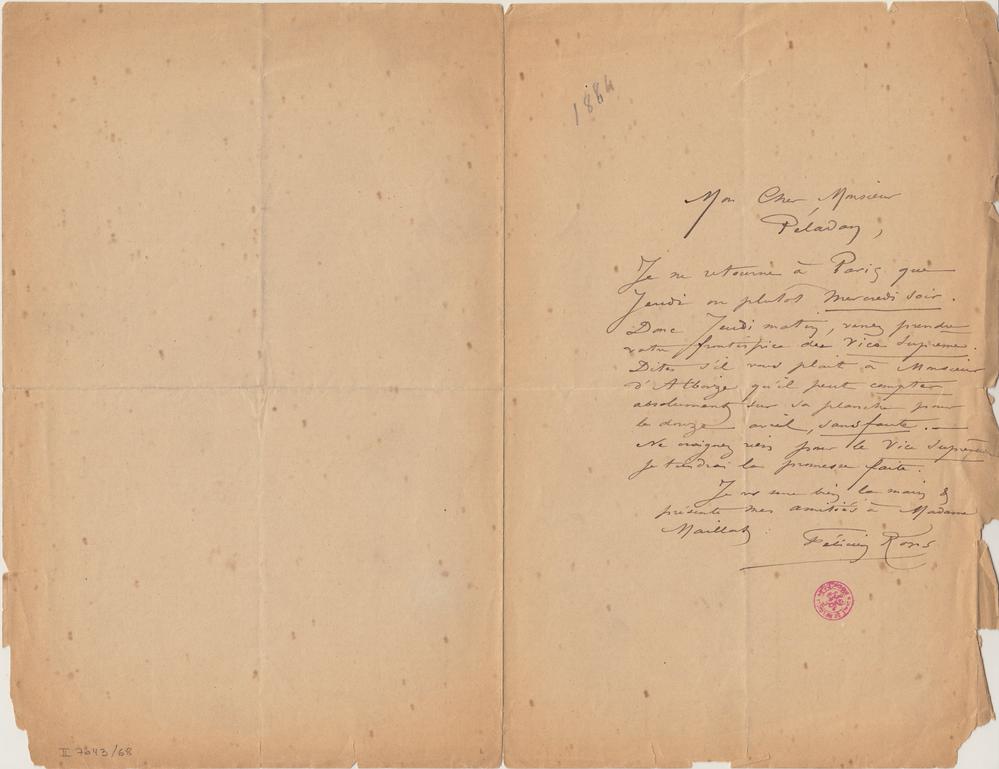 1884
Mon Cher Monsieur
Peladan,
Je ne retourne à Paris que
Jeudi ou plutot mercredi soir.
Donc Jeudi matin, venez prendre
votre frontispice du Vice Supreme.
Dites s'il vous plait à Monsieur
d'Alboize qu'il peut compter
absolument sur sa planche pour
le douze avril, sans faute. —
Ne craignez rien pour le Vice Suprême
je tiendrai la promesse faite.
Je vs serre bien la main &
présente mes amitiés à Madame
Maillat.
Félicien Rops
II 7643/68